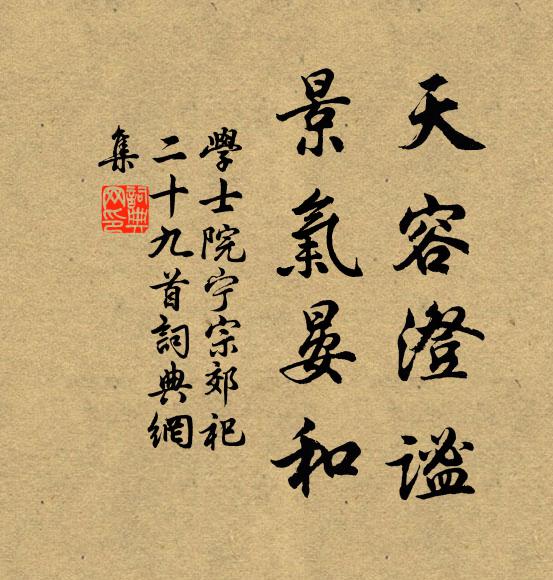 天容澄謐
景氣晏和
學士院宁宗郊祀
二十九首詞典網
集
詞典网印